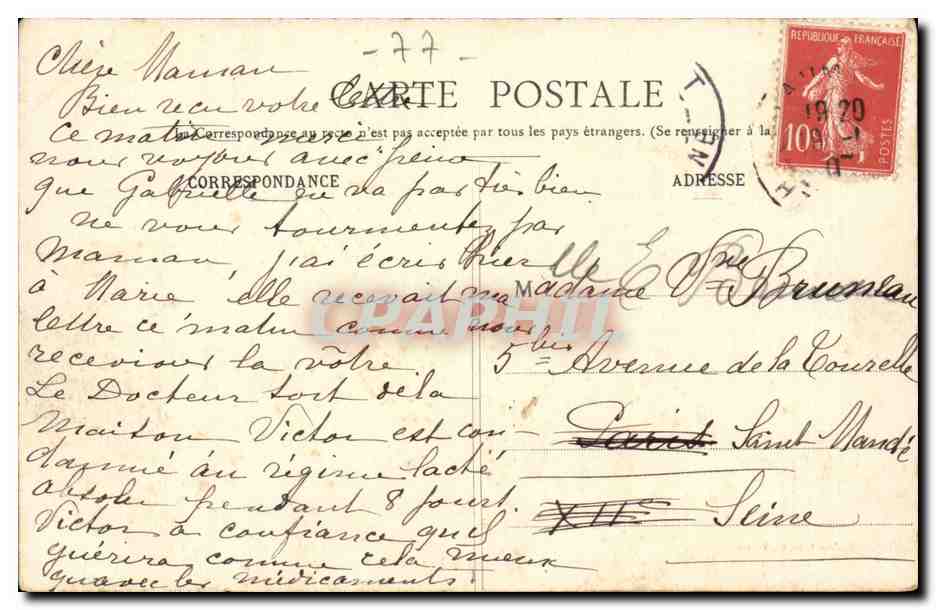 -77-
Chère Maman
Bien reçu votre lettre
ce matin merci
nous voyons avec peine
que Gabrielle ne va pas très bien
ne vous tourmentez pas
Maman, j'ai écris hier
à Marie elle recevait ma
lettre ce matin comme nous
recevions la vôtre
Le Docteur sort de la
maison Victor est con-
damné au régime lacté
absolu pendant 8 jours.
Victor a confiance qu'il
guérira comme cela mieux
qu'avec les médicaments.
CARTE POSTALE
La Correspondance au recto n'est pas acceptée par tous les pays étrangers. (Se renseigner à la
CORRESPONDANCE
ADRESSE
REPUBLIQUE FRANÇAISE
10
POSTES
19 20
Madame Vve Bruneau
5 bis Avenue de la Tourelle
Paris Saint Mandé
XIIe Seine
CPAPHIL